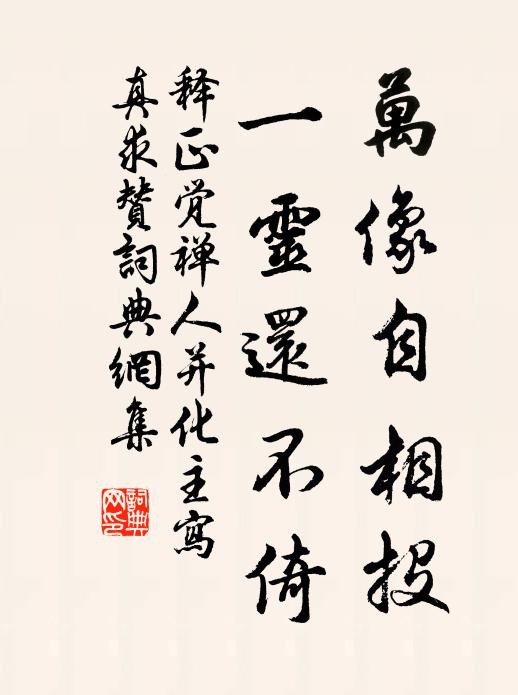 萬像自相投
一靈還不倚
释正觉禅人并化主寫
真求賛詞典網集
詞典
网印